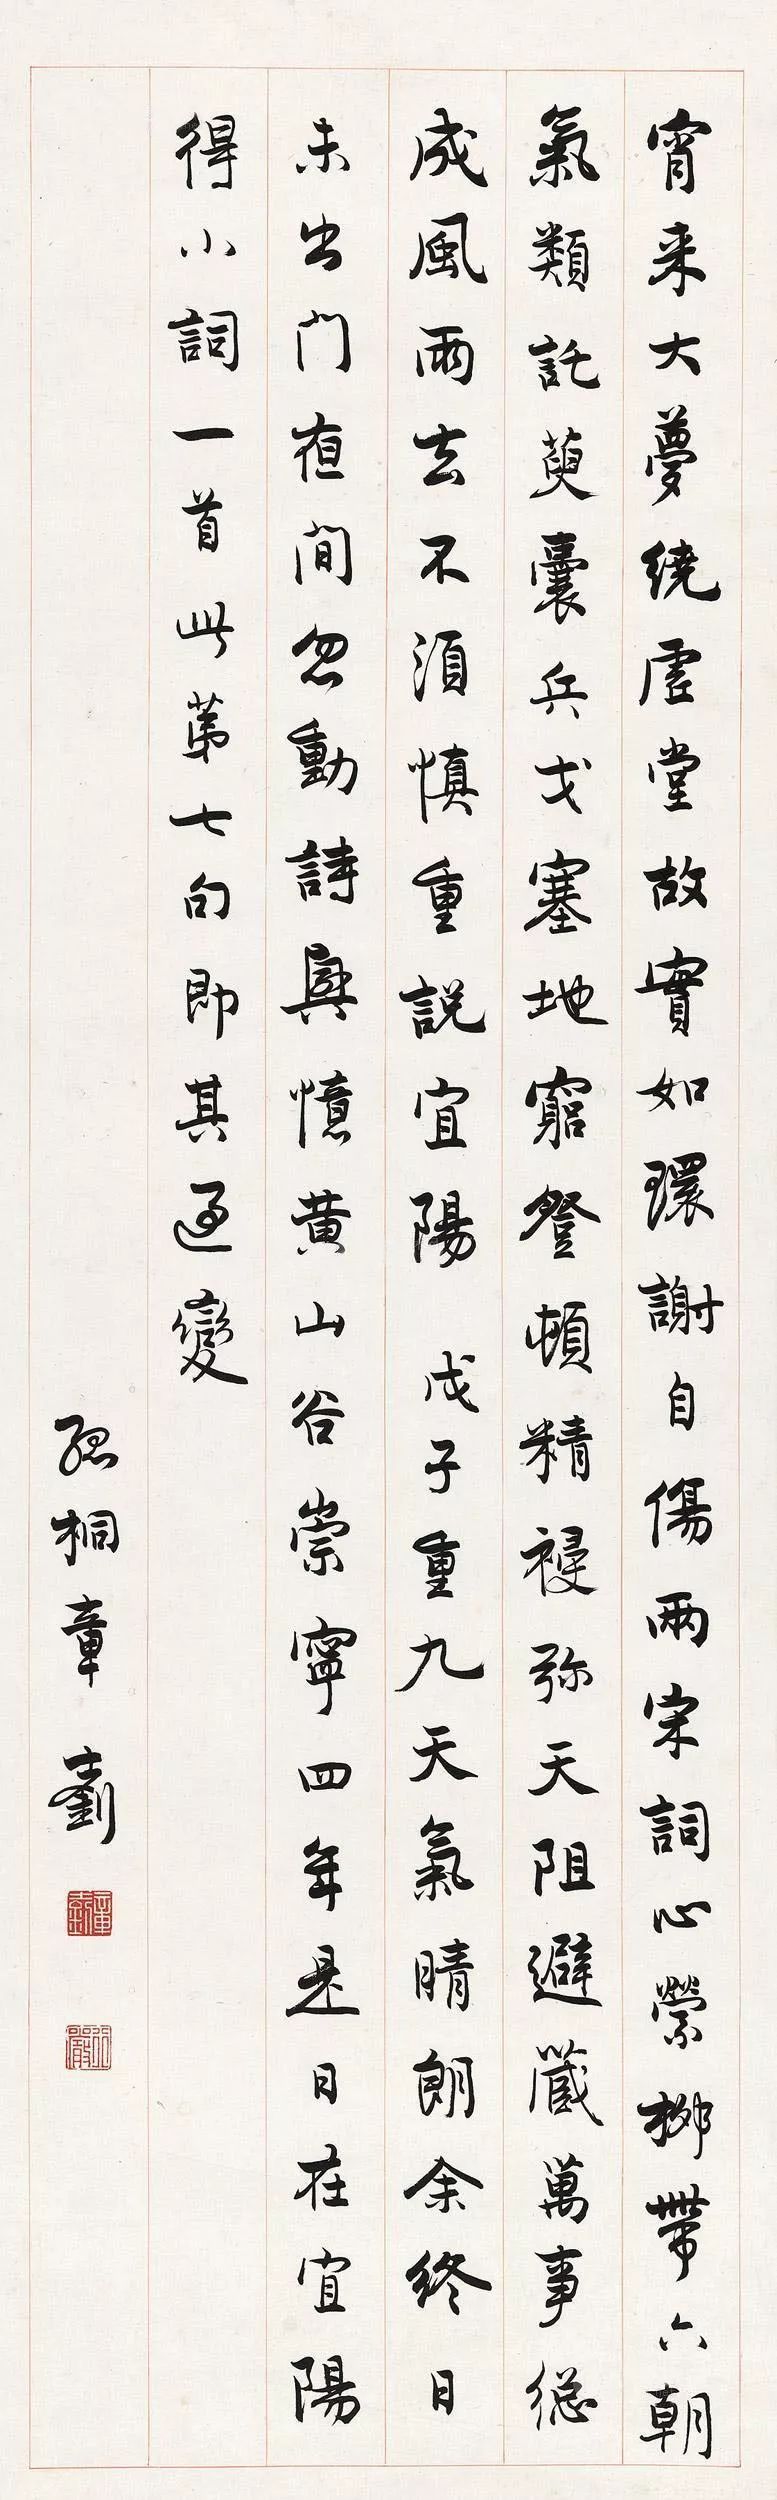 宵来大夢繞虛堂故實如環謝自傷兩宋詞心縈柳帶六朝
氣類託萸囊兵戈塞地窮登頓精祲弥天阻避藏萬事總
成風雨去不須慎重說宜陽 戊子重九天氣晴朗余終日
未出門夜間忽動詩興憶黃山谷崇寧四年是日在宜陽
得小詞一首此第七句即其適變
孤桐章士釗
章士釗
行嚴